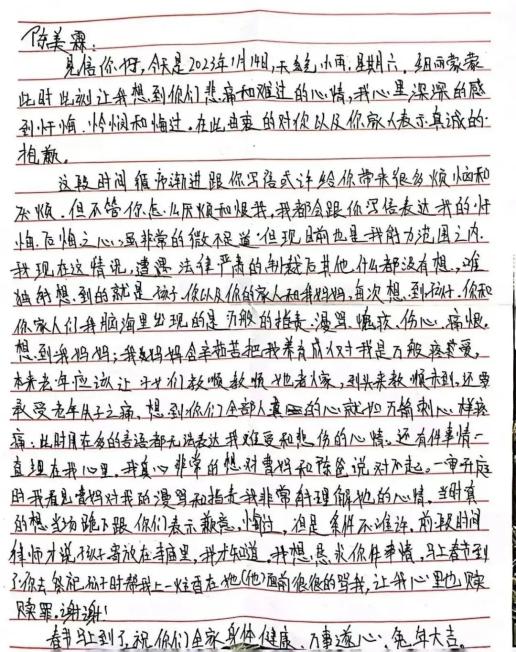 陈美霖:
见信你好,今天是2023年1月14日,天气小雨,星期六。细雨蒙蒙
此时此刻让我想到你们悲痛和难过的心情,我心里深深的感
到忏悔、怜悯和悔过。在此由衷的对你以及你家人表示真诚的
抱歉。
这段时间循序渐进跟你写信或许给你带来很多烦恼和
不烦。但不管你怎么厌烦和恨我,我都会跟你写信表达我的忏
悔。后悔之心,虽非常的微不足道,但现目前也是我能力范围之内。
我现在这情况,遭遇法律严肃的制裁后其他什么都没有想,唯
独能想到的就是孩子你以及你的家人和我妈妈,每次想到孩子、你和
你家人们我脑海里出现的是万般的指责、漫骂、愧疚、伤心、痛恨。
想到我妈妈;我妈妈含辛茹苦把我养育成人对我是万般疼爱,
本来去年应该让子女们孝顺她老人家,到头来孝顺未到,还要
承受老年失子之痛。想到你们全部人真的心就如万箭刺心一样疼
痛;此时用在多的言语都无法表达我难受和悲伤的心情。还有件事情一
直埋在我心里,我真心非常的想对曹妈和陈爸说对不起。一审开庭
时我看见曹妈对我的漫骂和指责我非常能理解她的心情,当时真
的想当场跪下跟你们表示歉意、悔过,但是条件不准许。前段时间
律师才说孩子寄放在寺庙里,我才知道。我想恳求你件事情,马上春节到
了你去祭祀孩子时帮我上一炷香在她(他)面前狠狠的骂我,让我心里也赎
赎罪。谢谢!
春节马上到了,祝你们全家身体健康、万事遂心、兔年大吉。